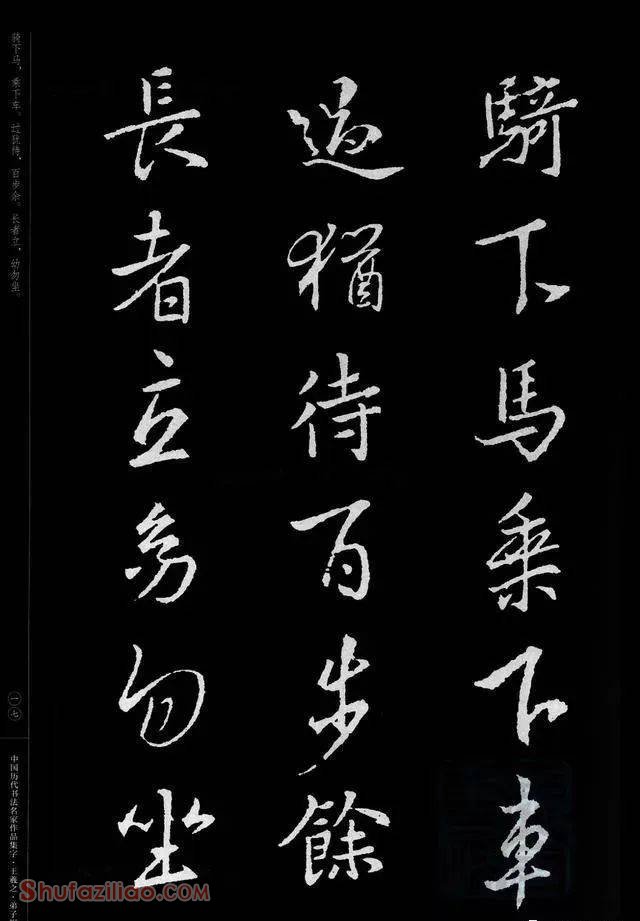 騎下馬乘下車
過猶待百步餘
長者立幼勿坐
骑下马，乘下车。过犹待，百步余。长者立，幼勿坐。
一七
中国历代书法名家作品集字·王羲之·弟子
Shufaziliao.com